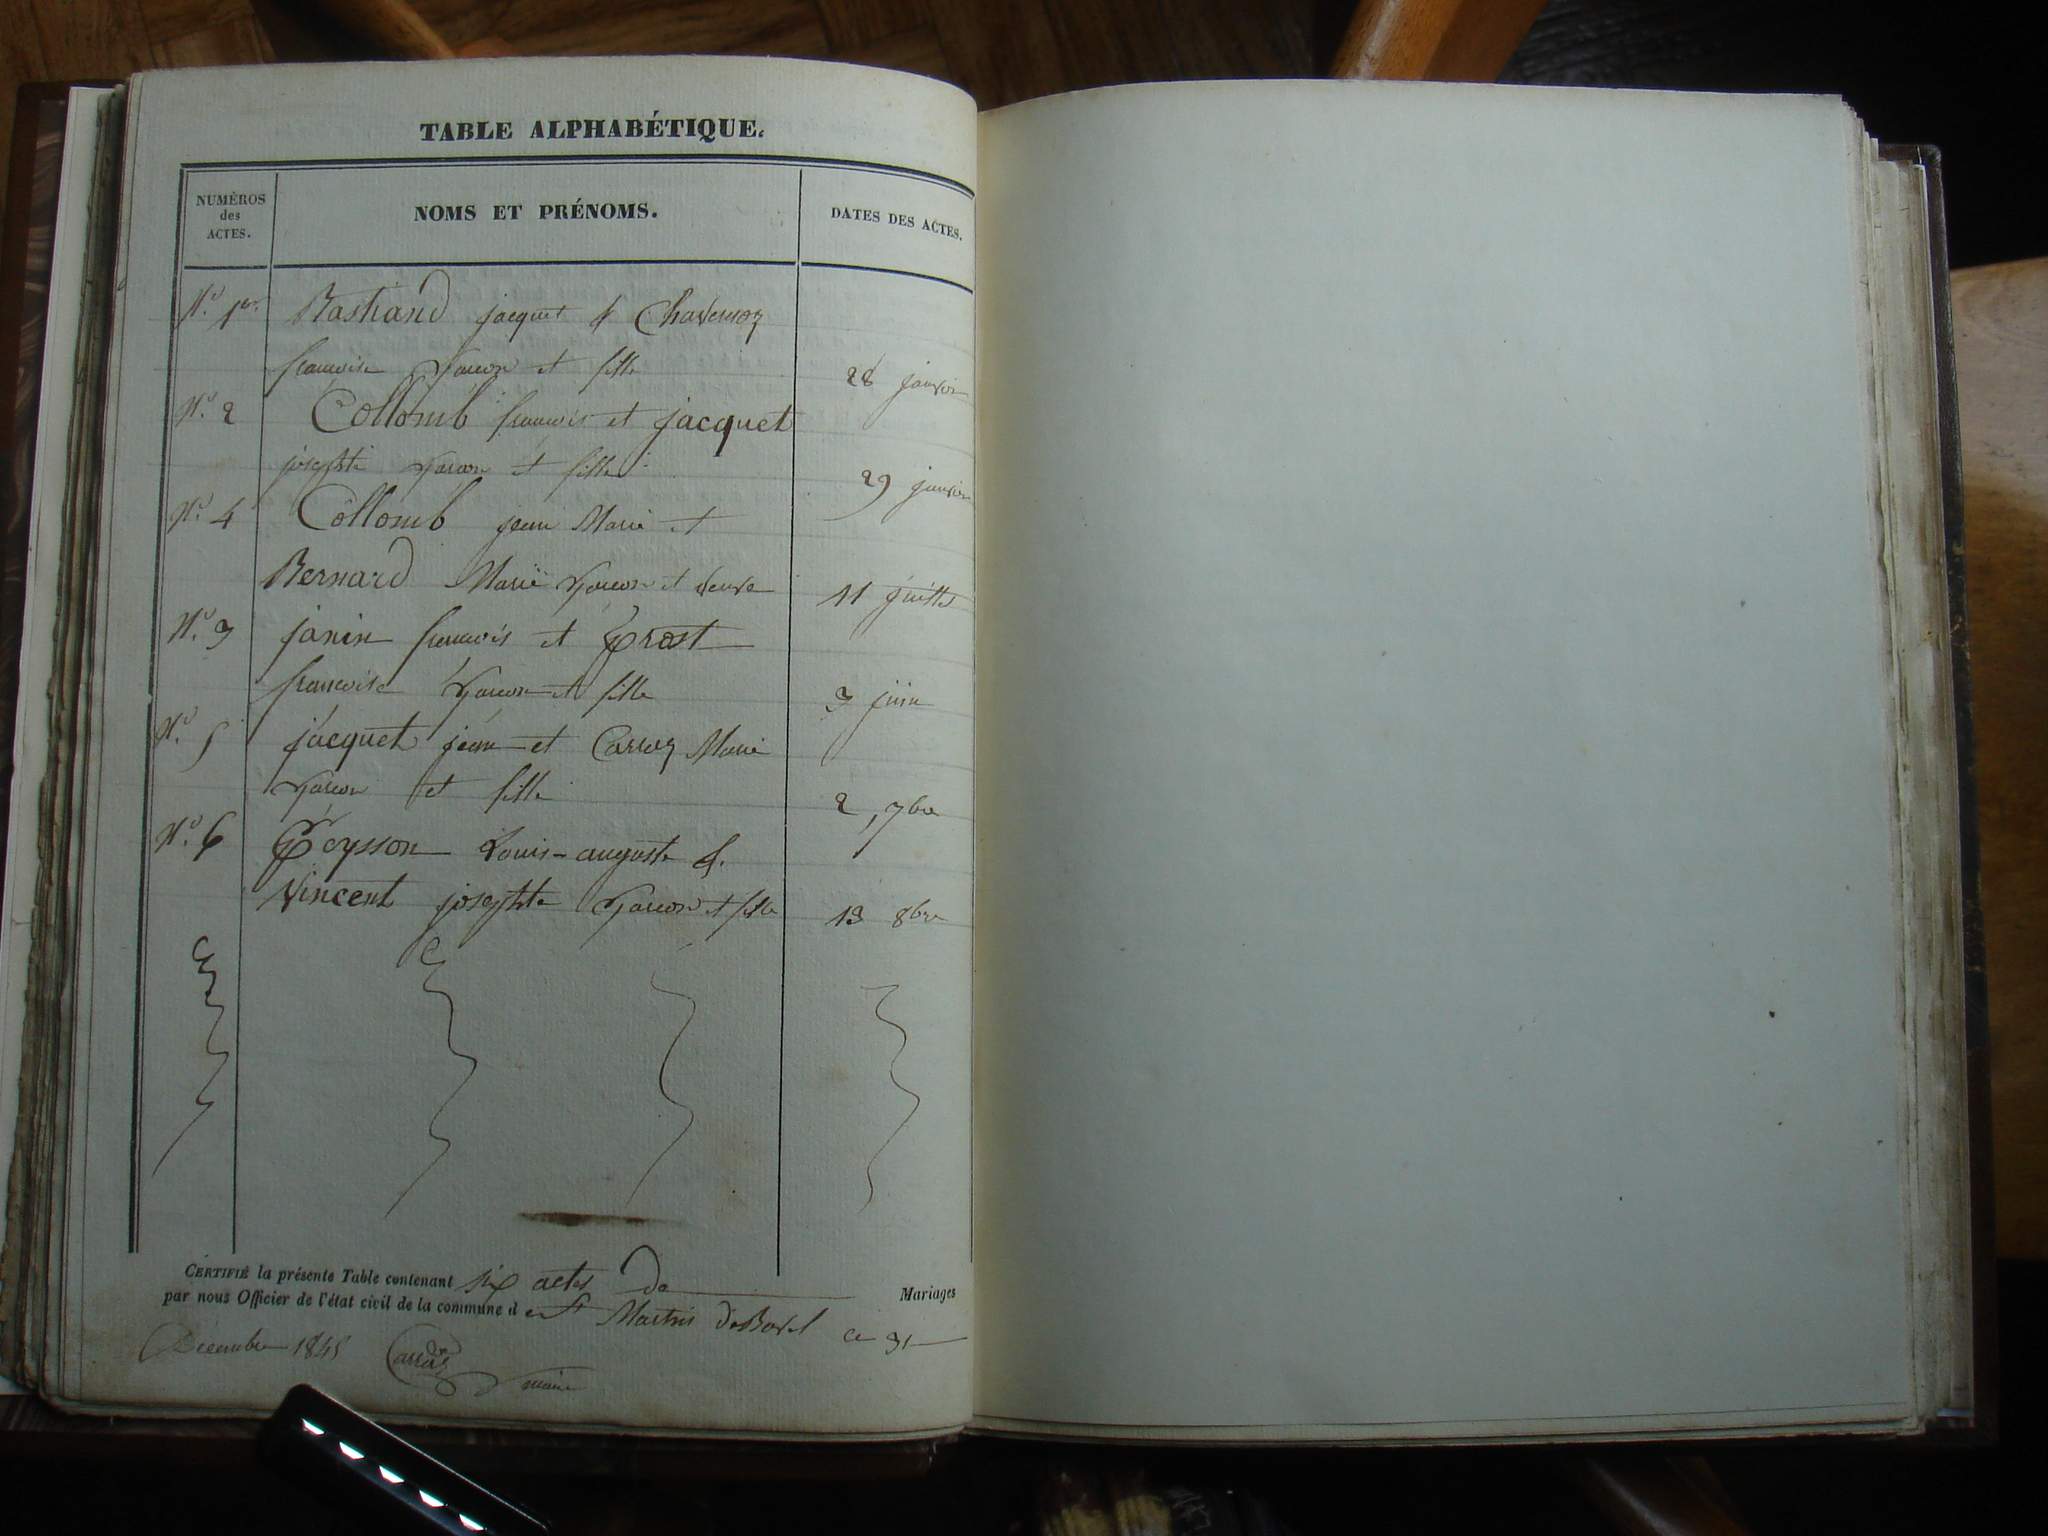 TABLE ALPHABÉTIQUE.
NUMÉROS des ACTES.
NOMS ET PRÉNOMS.
DATES DES ACTES.
N.o 1er. Bastiand jacquet & Chavernoz
françoise Garcon et fille 28 janvier
N.o 2 Collomb françois et jacquet
josephte Garcon et fille 29 janvier
N.o 4 Collomb jean Marie et
Bernard Marie Garcon et veuve 11 juillet
N.o 3 janin françois et Prost
françoise Garcon et fille 3 juin
N.o 5 jacquet jean et Carraz Marie
Garcon et fille 2, 7bre
N.o 6 Peysson Louis-auguste &.
Vincent josephte Garcon et fille 13 8bre
CERTIFIÉ la présente Table contenant six actes de Mariages
par nous Officier de l'état civil de la commune de St Martin de Bavel ce 31
Décembre 1845 Carraz maire